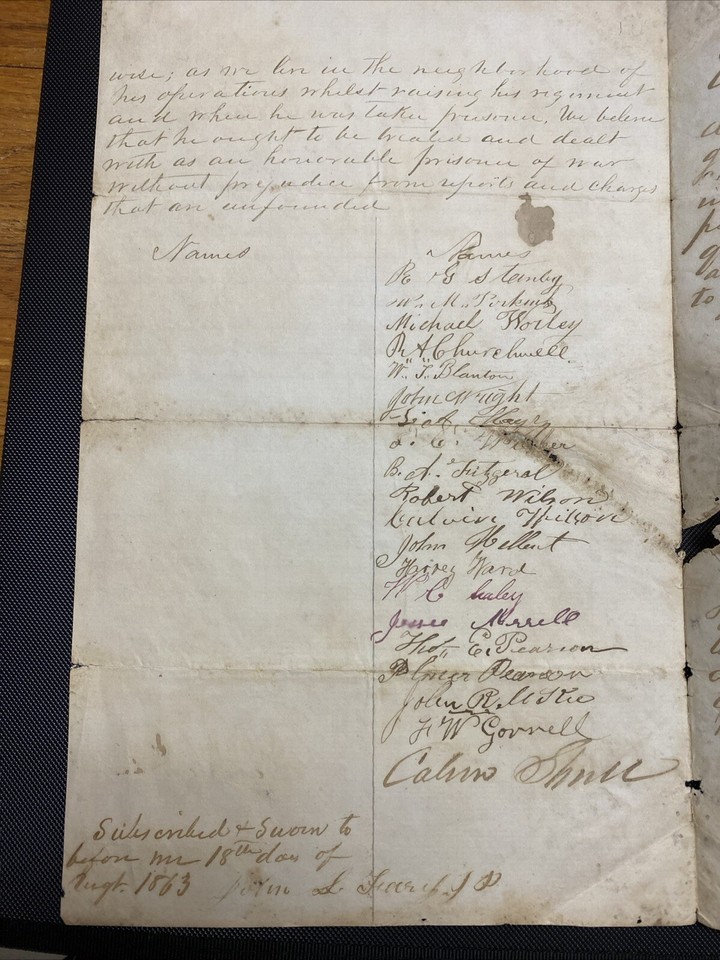 wise; as we live in the neighborhood of
his operations whilst raising his regiment
and when he was taken prisoner. We believe
that he ought to be treated and dealt
with as an honorable prisoner of war
without prejudice from reports and charges
that are unfounded
Names
Names
R G Stanley
W. M. Perkins
Michael Worley
R A Churchwell
W. T. Blanton
John Wright
B. A. Fitzgeral
Robert Wilson
Calvin Wilson
John
Harvey Ward
W C
Jesse Merrell
Thos E. Pearson
Pearson
John R. McKee
F W Gorrell
Calvin Shull
Subscribed & Sworn to
before me 18th day of
Augt. 1863 John L J P